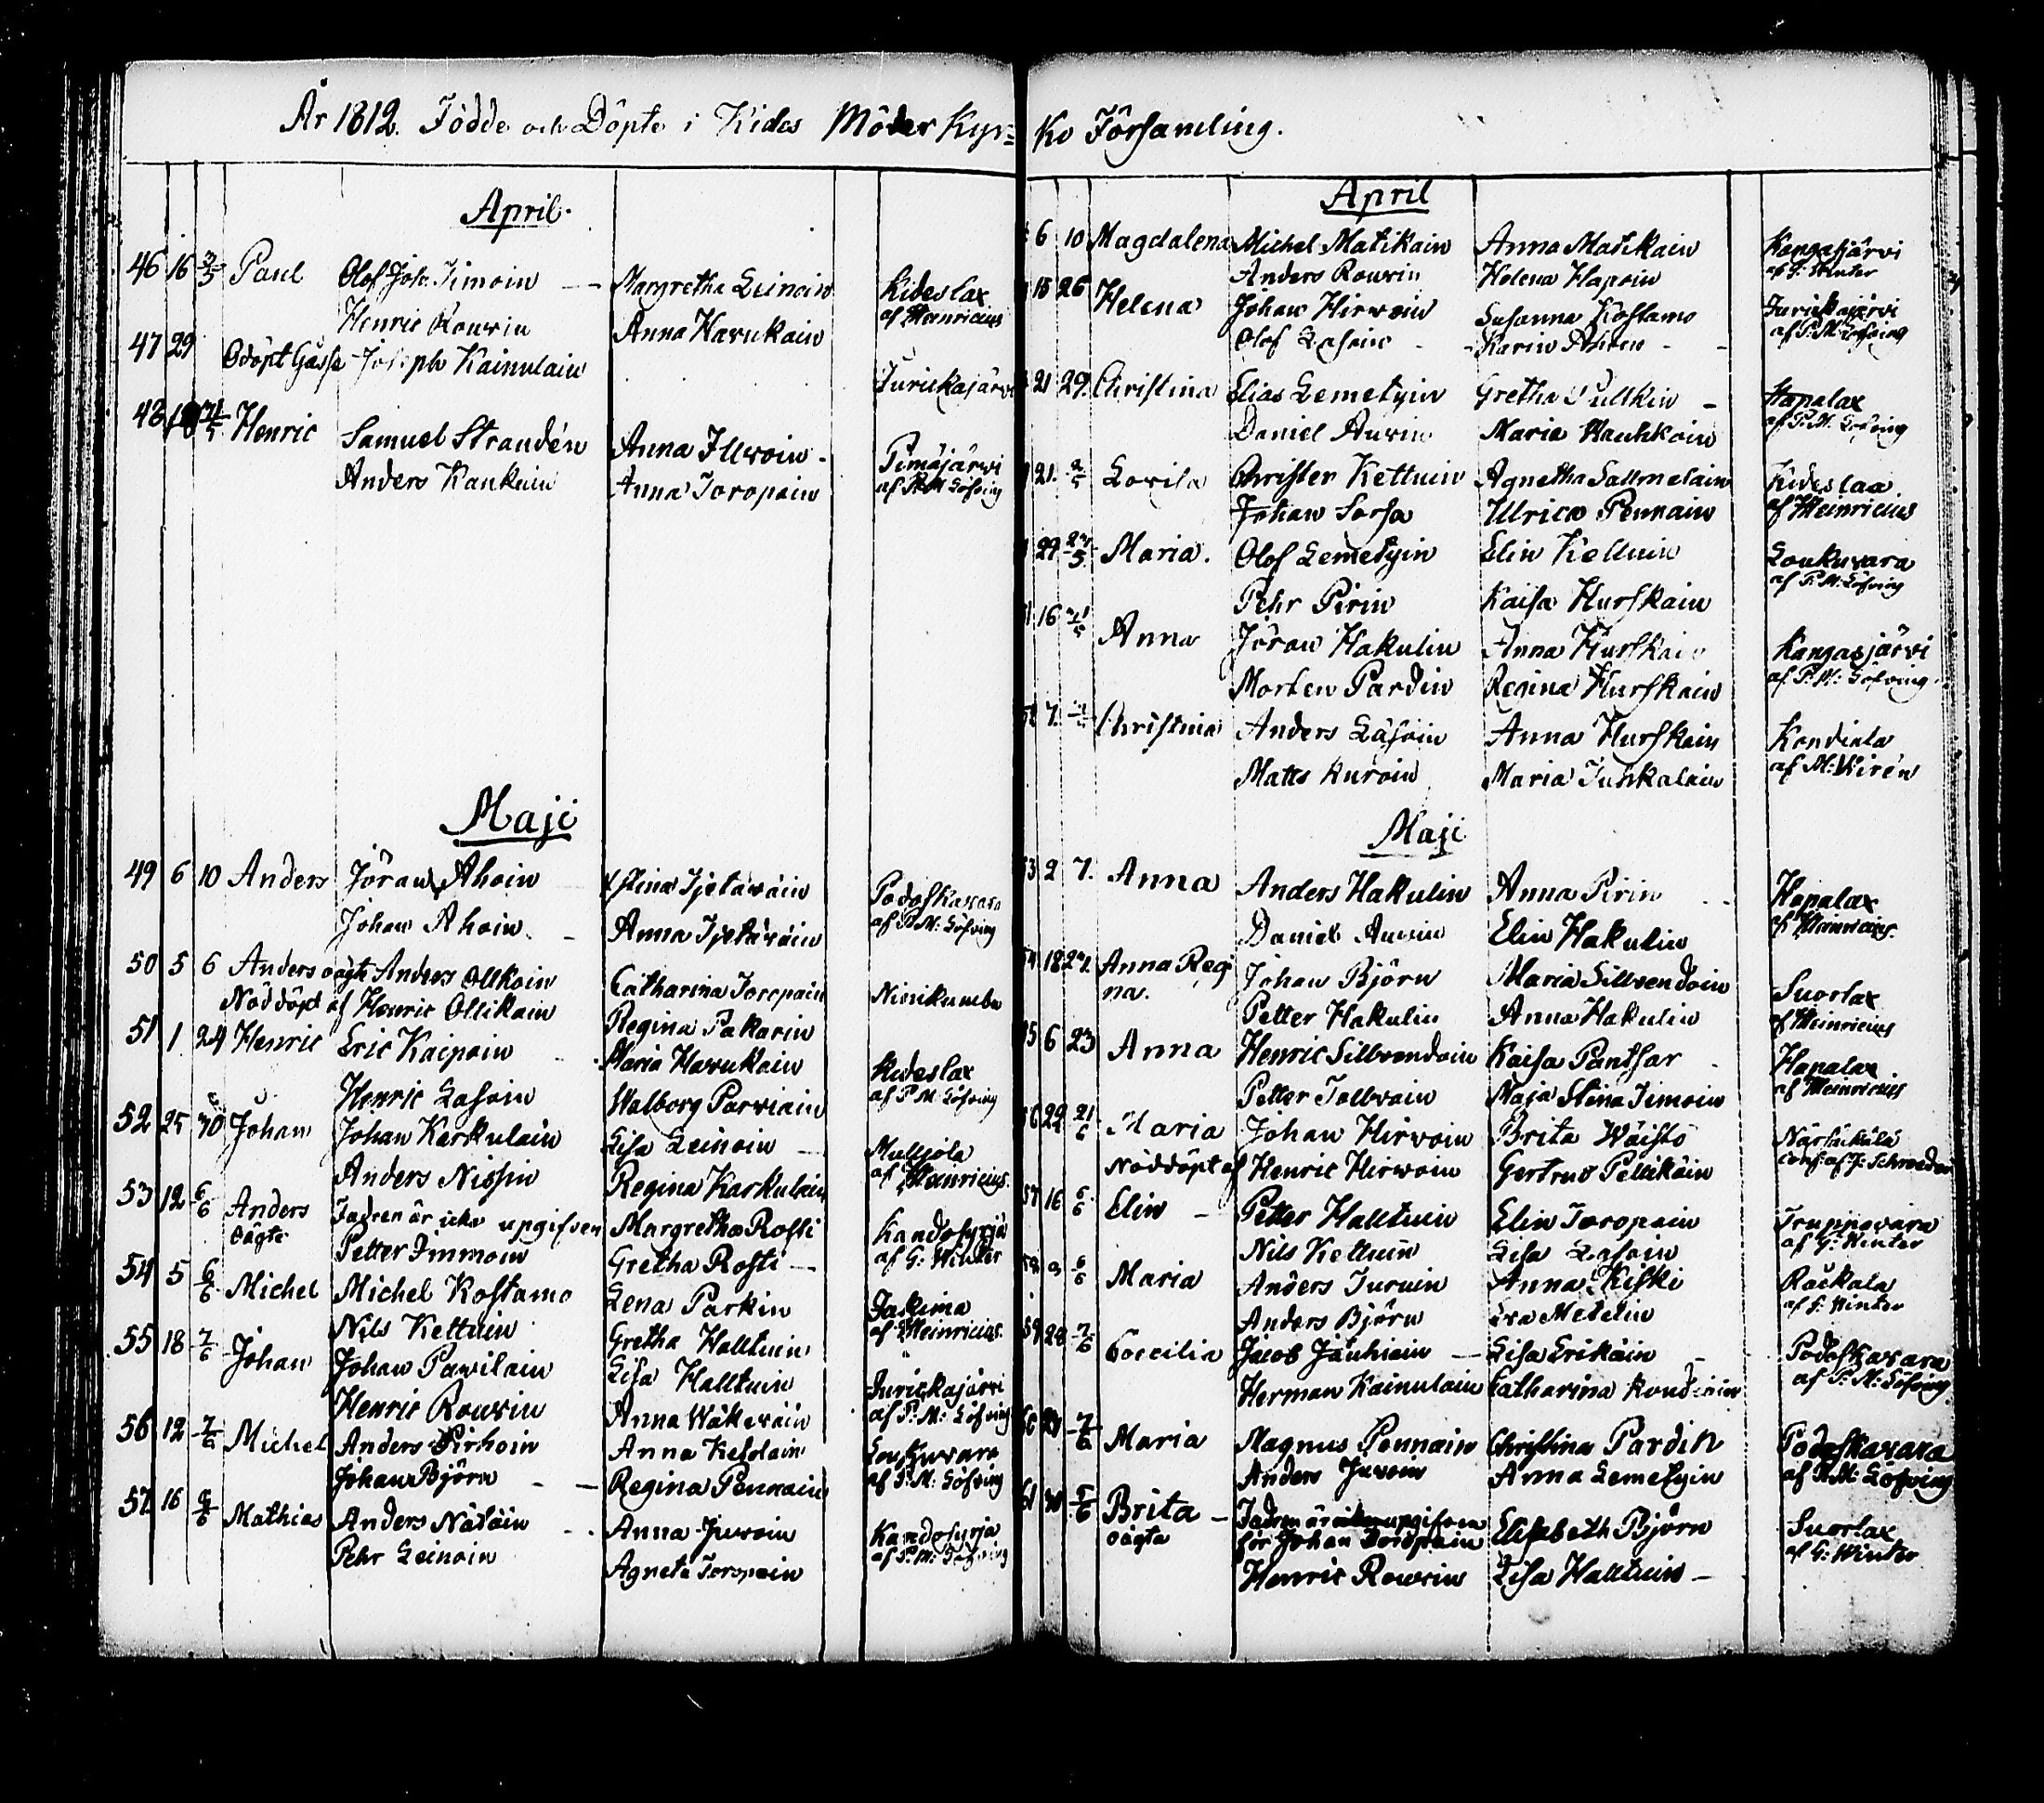 År 1812. Födde och Döpte i Kides Moder Kyr=
April.
46 16 3/5 Paul Olof Joh. Simoin Margretha Leinoin Kideslax
Henric Rouvin Anna Havukain af Heinricius
47 29 Odöpt Gåsse Joseph Kainulain Jurickajärvi
48 18 Henric Samuel Strandén Anna Illvoin Pimäjärvi
Anders Kaukuin Anna Toropain af P. M. Löfving
Maji
49 6 10 Anders Jöran Ahoin Stina Tjetäväin Podoskavara
Johan Ahoin Anna Tjetäväin af P. M: Löfving
50 5 6 Anders oägte Anders Ollkain Catharina Toropain Niinikumbu
Nöddöpt af Henric Ollikain Regina Pakarin
51 1 24 Henric Eric Kaipain Maria Havukain Kideslax
Henric Lasoin Walborg Parviain af P. M. Löfving
52 25 30 Johan Johan Karkulain Lisa Leinoin Muljola
Anders Nissin Regina Karkulain af Heinricius.
53 12 6/6 Anders Fadren är icke upgifven Margretha Rosti Kandosyrjä
oägte Petter Immoin Gretha Rosti af G: Winter
54 5 6/6 Michel Michel Kostamo Lena Parkin Jakima
Nils Kettuin Gretha Halltuin af Heinricius.
55 18 7/6 Johan Johan Pavilain Lisa Halltuin Jurickajärvi
Henric Rouvin Anna Wäkeväin af P: M: Löfving
56 12 7/6 Michel Anders Pirhoin Anna Keldain Loukuvara
Johan Björn Regina Pennain af P. M: Löfving
57 16 Mathias Anders Nätäin Anna Juvoin Kandosyrja
Pehr Leinoin Agneta Toropain af P: M: Löfving
Ko Församling.
April
6 10 Magdalena Michel Matikain Anna Matikain Kangasjärvi
Anders Rouvin Helena Hapoin af G: Winter
18 26 Helena Johan Hirvoin Susanna Kostamo Jurickajärvi
Olof Lasoin Karin af P. M. Löfving
21 29. Christina Elias Lemetyin Gretha Pullkin Hapalax
Daniel Auvin Maria Hauhkain af P: M: Löfving
21. 2/5 Lovisa Christer Kettuin Agnetha Sallmelain Kideslax
Johan Sorsa Ulrica Pennain af Heinricius
29 Maria. Olof Lemetyin Elin Kettuin Loukuvara
Pehr Pirin Kaisa Hurskain af P. M: Löfving
16 Anna Jöran Hakulin Anna Hurskain Kangasjärvi
Morten Pardin Regina Hurskain af P. M: Löfving.
7. Christina Anders Lasoin Anna Hurskain Kondiala
Matts Kuroin Maria Juhkalain af M: Wirén
Maji
2 7. Anna Anders Hakulin Anna Pirin Hapalax
Daniel Auvin Elin Hakulin af Heinricius.
18 24. Anna Regi Johan Björn Maria Sillvendoin Suorlax
na. Petter Hakulin Anna Hakulin af Heinricius
6 23 Anna Henric Sillvendoin Kaisa Pantsar Hapalax
Petter Tollvain Maja Stina Simoin af Heinricius
22 21/6 Maria Johan Hirvoin Brita Wäistö Närsäkälä
Nöddöpt af Henric Hirvoin Gertrud Pellikäin conf: af J: Schroeder
16 6/6 Elin Petter Halltuin Elin Toropain Truppovara
Nils Kettuin Lisa Lasoin af G: Winter
6/6 Maria Anders Turuin Anna Kiski Räckälä
Anders Björn Eva Metelin af G: Winter
28 7/6 Coecilia Jacob Jauhiain Lisa Erikäin Podoskavara
Herman Kainulain Catharina af P: M: Löfving.
7/6 Maria Magnus Pennain Christina Pardin Podoskavara
Anders Juvoin Anna Lemetyin af P. M: Löfving
Brita Fadren är upgifven Elisabeth Björn Suorlax
oägta för Johan Toropain af G: Winter
Henric Rouvin Lisa Halltuin